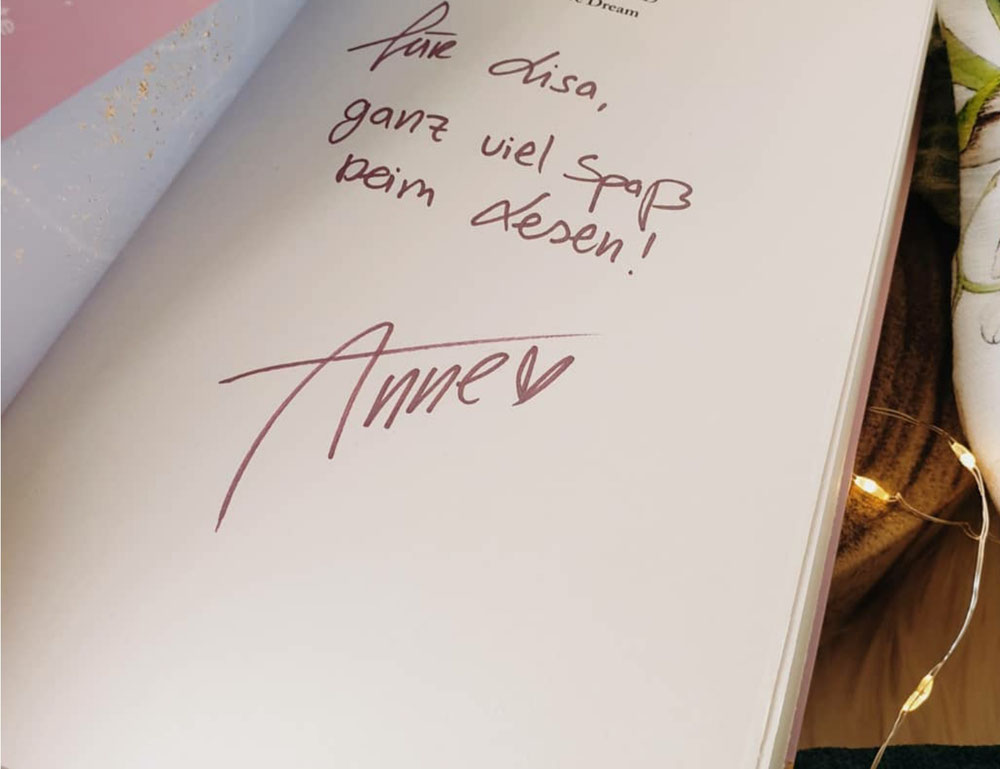 Dream
für Lisa,
ganz viel Spaß
beim Lesen!
Anne